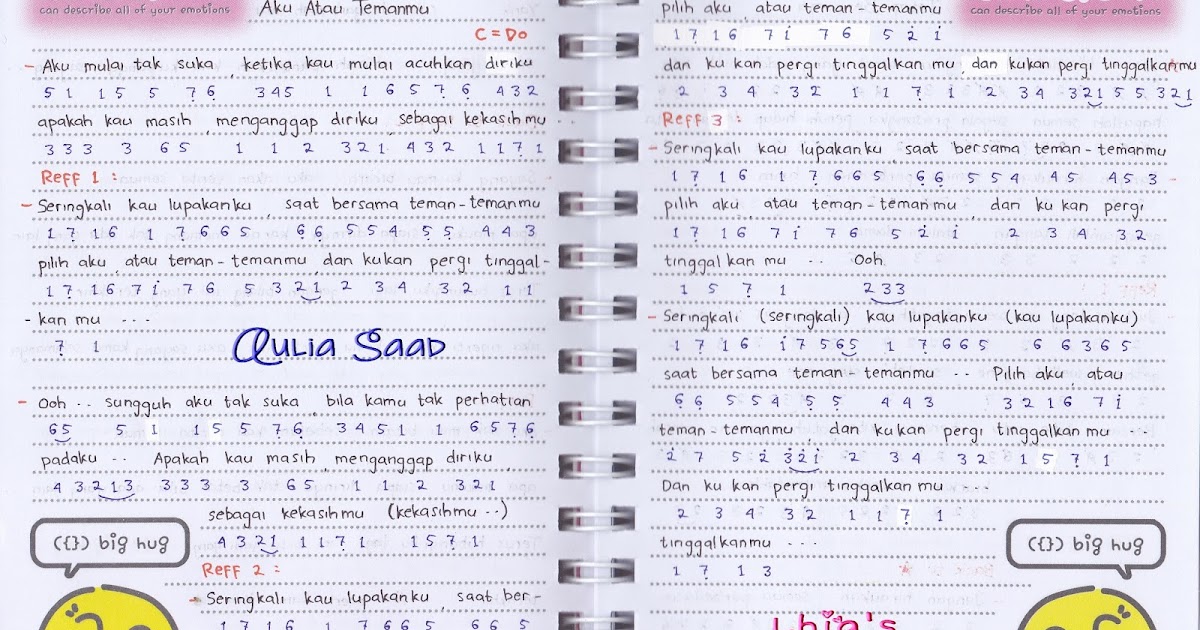 can describe all of your emotions
Aku Atau Temanmu
C = Do
- Aku mulai tak suka, ketika kau mulai acuhkan diriku
5 1 1 5 5 7̣ 6̣ 3 4 5 1 1 6 5 7̣ 6̣ 4 3 2
apakah kau masih, menganggap diriku, sebagai kekasihmu ..
3 3 3 3 6 5 1 1 2 3 2 1 4 3 2 1 1 7̣ 1
Reff 1 :
- Seringkali kau lupakanku, saat bersama teman-temanmu
1 7̣ 1 6 1 7̣ 6 6 5 6̣ 6̣ 5 5 4 5̣ 5̣ 4 4 3
pilih aku, atau teman-temanmu, dan kukan pergi tinggal-
1 7̣ 1 6 7 i 7 6 5 3 2 1 2 3 4 3 2 1 1
- kan mu ...
7̣ 1
Aulia Saad
- Ooh .. sungguh aku tak suka, bila kamu tak perhatian
6 5 5 1 1 5 5 7̣ 6̣ 3 4 5 1 1 6 5 7̣ 6̣
padaku .. Apakah kau masih, menganggap diriku,
4 3 2 1 3 3 3 3 3 6 5 1 1 2 3 2 1
sebagai kekasihmu (kekasihmu ..)
4 3 2 1 1 1 7̣ 1 1 5 7̣ 1
({}) big hug
Reff 2 :
- Seringkali kau lupakanku, saat ber-
1 7 1 6 1 7 6 6 5 6 6 5
pilih aku, atau teman-temanmu
1 7̣ 1 6 7 i 7 6 5 2̇ i
can describe all of your emotions
dan ku kan pergi tinggalkan mu, dan kukan pergi tinggalkanmu
2 3 4 3 2 1 1 7̣ 1 2 3 4 3 2 1 5 5 3 2 1
Reff 3 :
- Seringkali kau lupakanku, saat bersama teman-temanmu
1 7̣ 1 6 1 7̣ 6 6 5 6̣ 6̣ 5 5 4 4 5 4 5 3
pilih aku, atau teman-temanmu, dan ku kan pergi
1 7̣ 1 6 7 i 7 6 5 2̇ i 2 3 4 3 2
tinggal kan mu .. Ooh
1 5 7̣ 1 2 3 3
- Seringkali (seringkali) kau lupakanku (kau lupakanku)
1 7̣ 1 6 i 7 5 6 5 1 7̣ 6 6 5 6 6 3 6 5
saat bersama teman-temanmu .. Pilih aku, atau
6̣ 6̣ 5 5 4 5̣ 5̣ 4 4 3 3 2 1 6 7 i
teman-temanmu, dan kukan pergi tinggalkan mu ...
2̇ 7 5 2̇ 3̇ 2̇ i 2 3 4 3 2 1 5 7̣ 1
Dan ku kan pergi tinggalkan mu ....
2 3 4 3 2 1 1 7̣ 1
tinggalkanmu ...
1 7̣ 1 3
({}) big hug